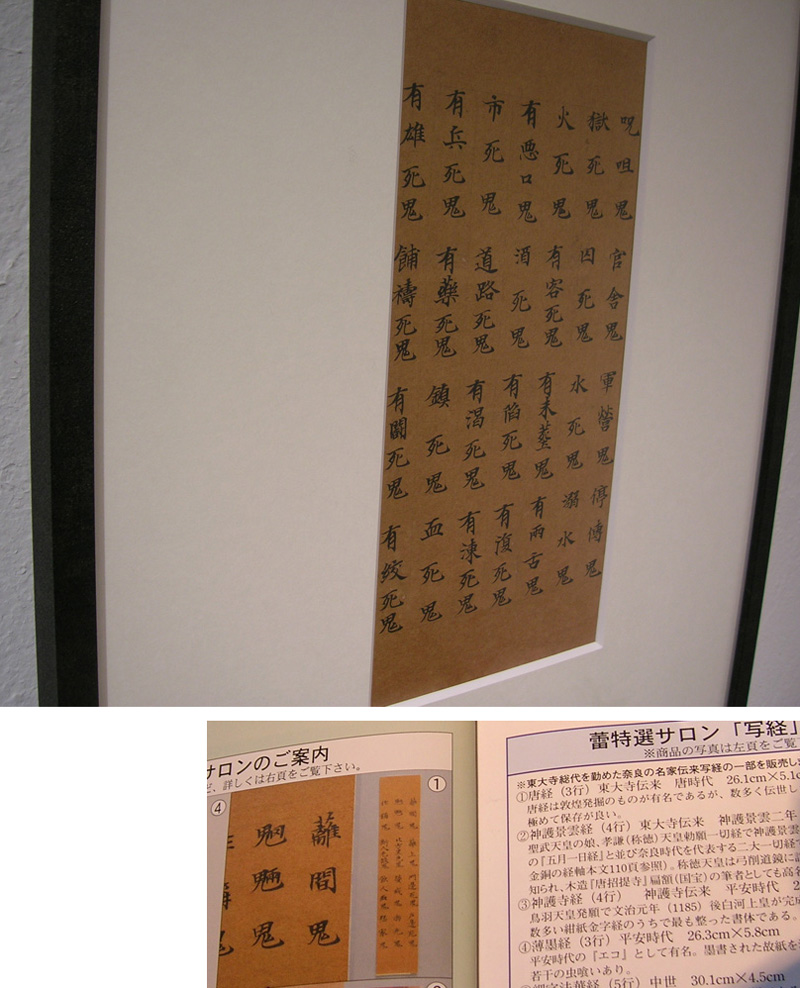 呪咀鬼 官舎鬼 軍營鬼 停傳鬼
獄死鬼 囚死鬼 水死鬼 溺水鬼
火死鬼 有客死鬼 有未葬鬼 有兩舌鬼
有悪口鬼 酒死鬼 有陷死鬼 有復死鬼
市死鬼 道路死鬼 有渇死鬼 有凍死鬼
有兵死鬼 有藥死鬼 鎮死鬼 血死鬼
有雄死鬼 餔禱死鬼 有鬪死鬼 有絞死鬼
サロンのご案内
詳しくは右頁をご覧下さい。
①
④
鬼
魍魎鬼
蕾特選サロン「写経」
※商品の写真は左頁をご覧
※東大寺総代を勤めた奈良の名家伝来写経の一部を販売し
①唐経(3行)東大寺伝来 唐時代 26.1cm×5.1c
唐経は敦煌発掘のものが有名であるが、数多く伝世し
極めて保存が良い。
②神護景雲経(4行)東大寺伝来 神護景雲二年
聖武天皇の娘、孝謙(称徳)天皇勅願一切経で神護景雲
の『五月一日経』と並び奈良時代を代表する二大一切経で
金銅の経軸本文110頁参照)。称徳天皇は弓削道鏡に
知られ、木造『唐招提寺』扁額(国宝)の筆者としても高名
③神護寺経(4行) 神護寺伝来 平安時代 2
鳥羽天皇発願で文治元年(1185)後白河上皇が完成
数多い紺紙金字経のうちで最も整った書体である。
④薄墨経(3行)平安時代 26.3cm×5.8cm
平安時代の『エコ』として有名。墨書された故紙を
若干の虫喰いあり。
字法華経(5行)中世 30.1cm×4.5cm